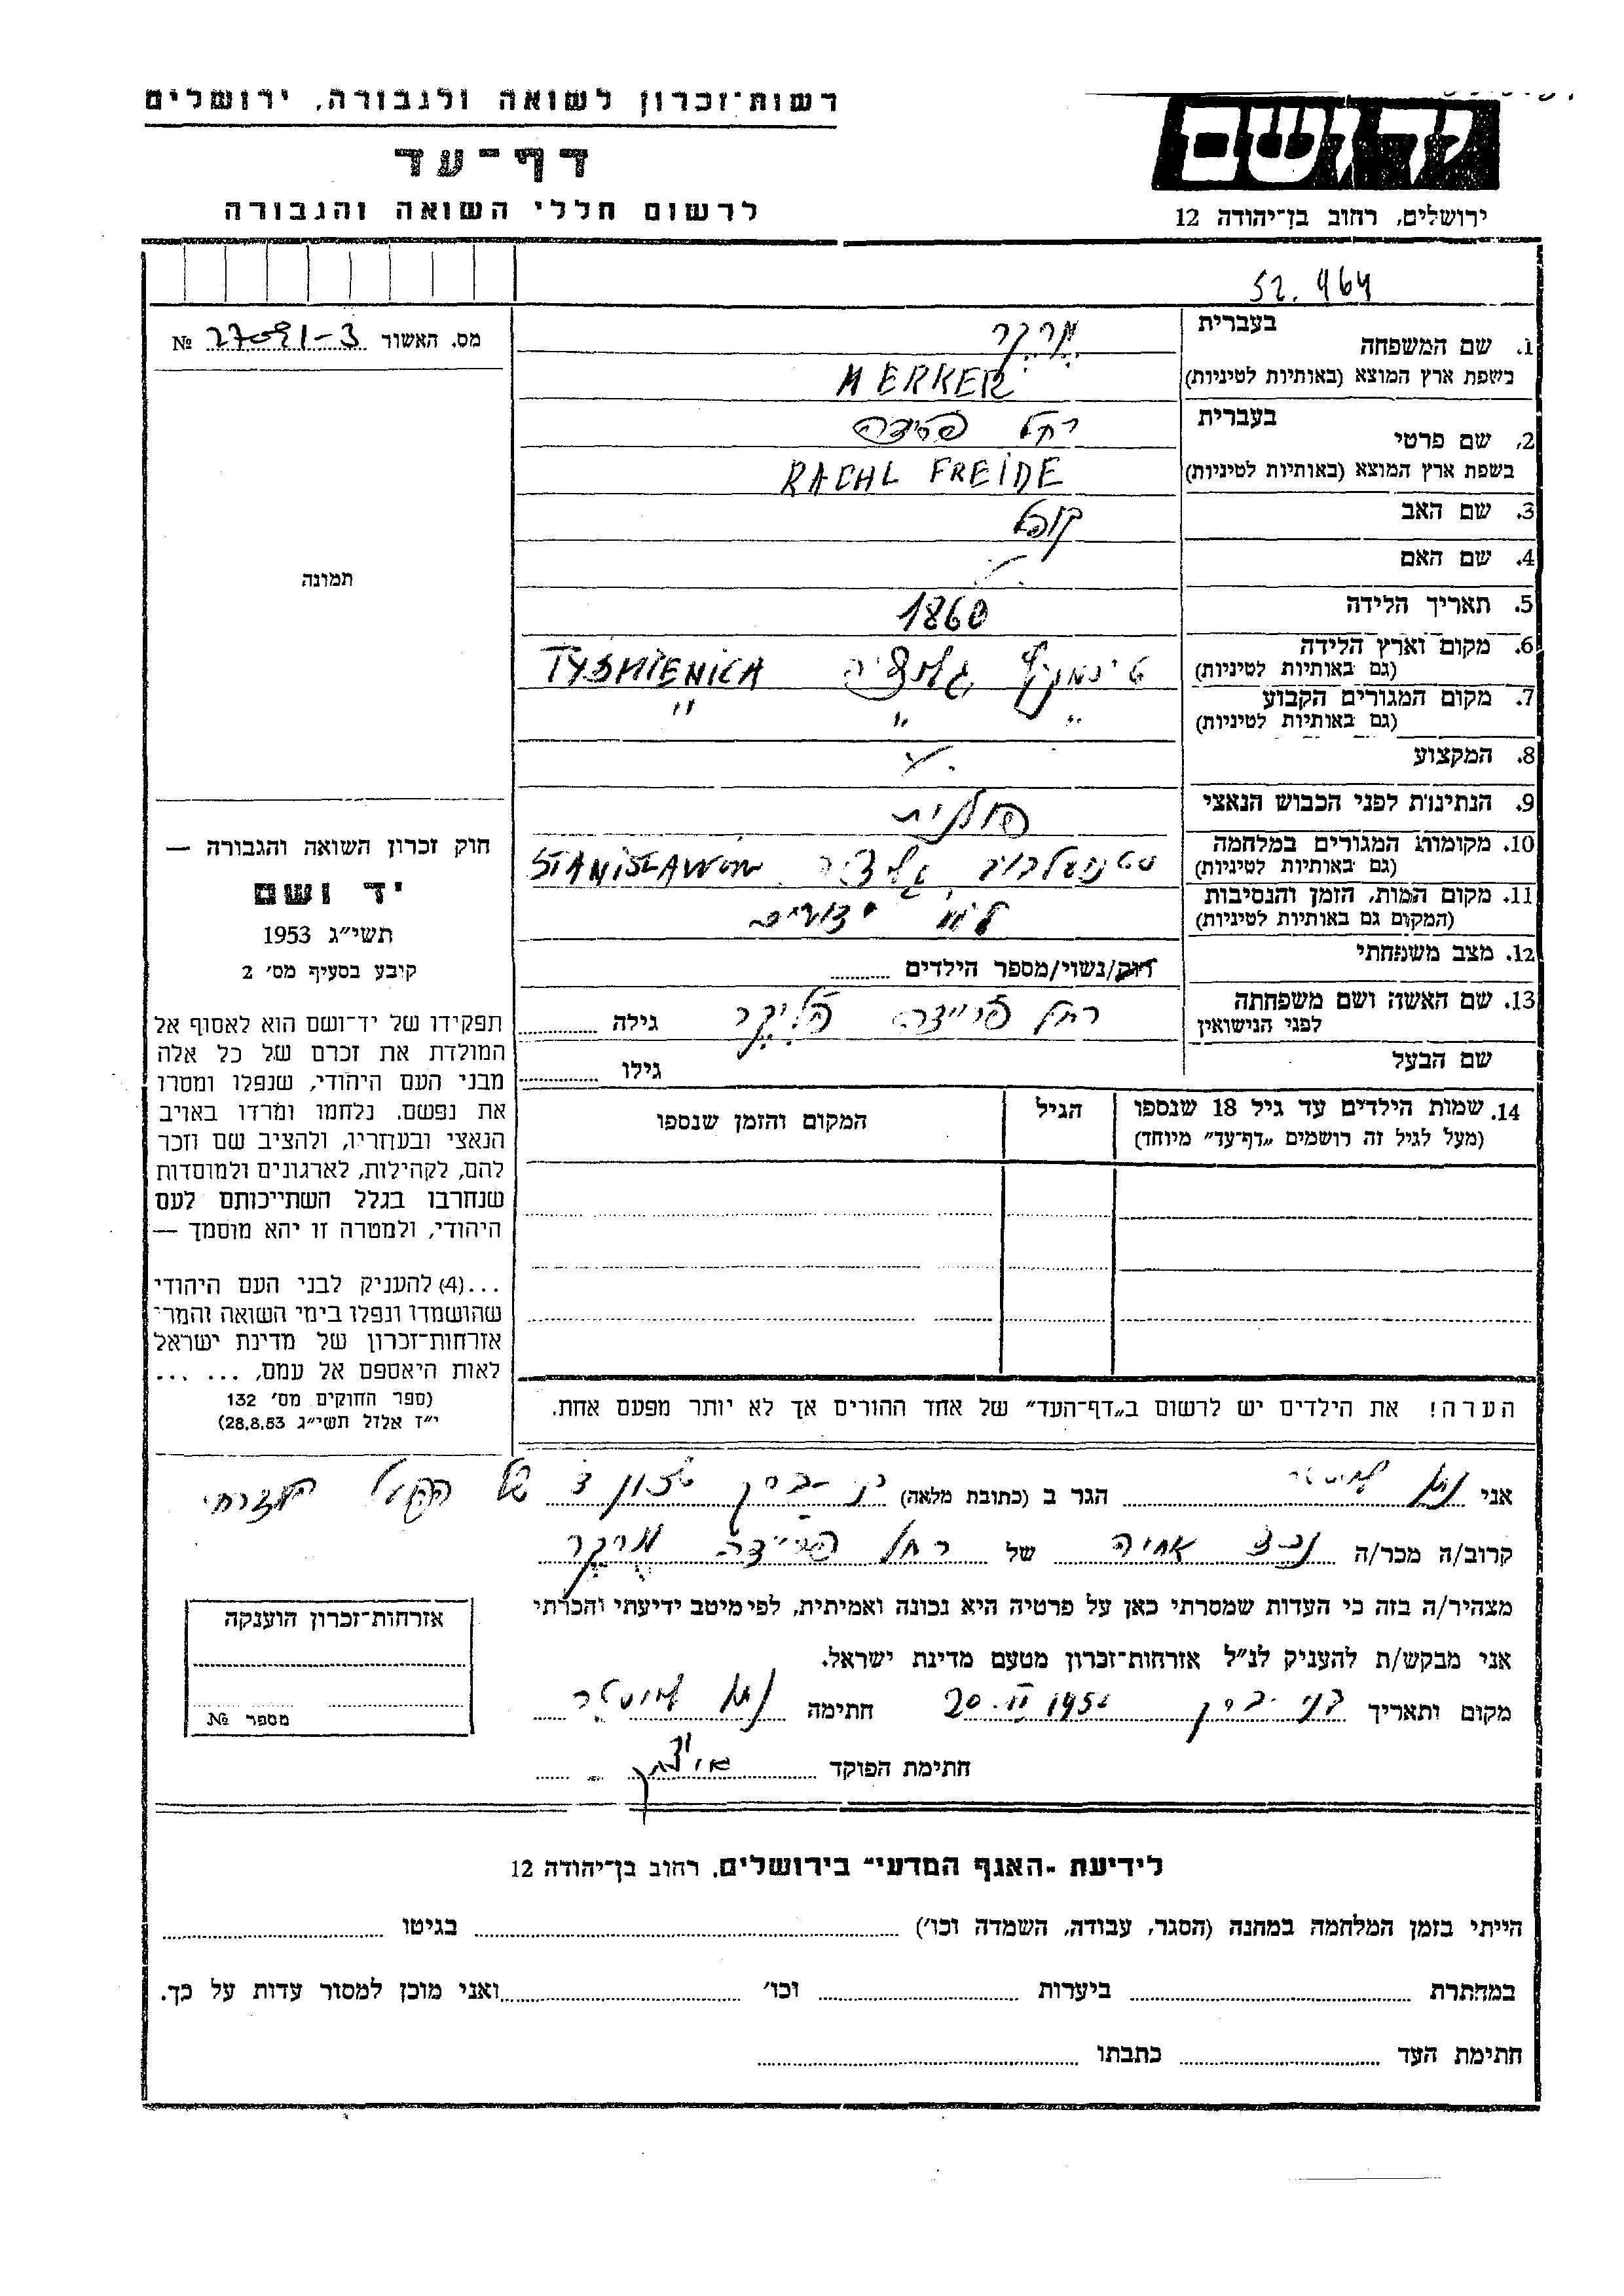 רשות־זכרון לשואה ולגבורה, ירושלים
דף־עד
לרשום חללי השואה והגבורה
יד ושם
ירושלים, רחוב בן־יהודה 12
52. 464
מס. האשור 27091-3 №
תמונה
1. שם המשפחה בעברית מרקר
בשפת ארץ המוצא (באותיות לטיניות) MERKER
2. שם פרטי בעברית רחל פריידה
בשפת ארץ המוצא (באותיות לטיניות) RACHL FREIDE
3. שם האב קופל
4. שם האם
5. תאריך הלידה 1860
6. מקום וארץ הלידה גליציה TYSMIENICA
(גם באותיות לטיניות)
7. מקום המגורים הקבוע " " "
(גם באותיות לטיניות)
8. המקצוע
9. הנתינות לפני הכבוש הנאצי פולנית
10. מקומות המגורים במלחמה גליציה STANISLAWOW
(גם באותיות לטיניות)
11. מקום המות, הזמן והנסיבות לא ידועים
(המקום גם באותיות לטיניות)
12. מצב משפחתי רווק/נשוי/מספר הילדים
13. שם האשה ושם משפחתה רחל פריידה גילה
לפני הנישואין
שם הבעל גילו
14. שמות הילדים עד גיל 18 שנספו הגיל המקום והזמן שנספו
(מעל לגיל זה רושמים „דף־עד" מיוחד)
הערה! את הילדים יש לרשום ב„דף־העד" של אחד ההורים אך לא יותר מפעם אחת.
חוק זכרון השואה והגבורה —
יד ושם
תשי"ג 1953
קובע בסעיף מס' 2
תפקידו של יד־ושם הוא לאסוף אל
המולדת את זכרם של כל אלה
מבני העם היהודי, שנפלו ומסרו
את נפשם, נלחמו ומרדו באויב
הנאצי ובעוזריו, ולהציב שם וזכר
להם, לקהילות, לארגונים ולמוסדות
שנחרבו בגלל השתייכותם לעם
היהודי, ולמטרה זו יהא מוסמך —
...(4) להעניק לבני העם היהודי
שהושמדו ונפלו בימי השואה והמרי
אזרחות־זכרון של מדינת ישראל
לאות היאספם אל עמם, ... ...
(ספר החוקים מס' 132
י"ז אלול תשי"ג 28.8.53)
אני נתן הגר ב (כתובת מלאה) בני ברק של הפועל המזרחי
קרוב/ה מכר/ה נכד אחיה של רחל פריידה מרקר
מצהיר/ה בזה כי העדות שמסרתי כאן על פרטיה היא נכונה ואמיתית, לפי מיטב ידיעתי והכרתי
אני מבקש/ת להעניק לנ"ל אזרחות־זכרון מטעם מדינת ישראל.
מקום ותאריך בני ברק 20.II 1956 חתימה נתן
חתימת הפוקד
אזרחות־זכרון הוענקה
מספר №
לידיעת „האגף המדעי" בירושלים, רחוב בן־יהודה 12
הייתי בזמן המלחמה במחנה (הסגר, עבודה, השמדה וכו') בגיטו
במחתרת ביערות וכו' ואני מוכן למסור עדות על כך.
חתימת העד כתבתו